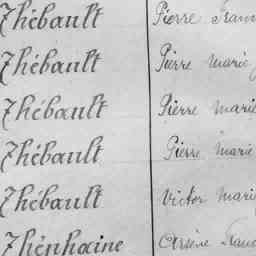 Thébault Pierre Fran
Thébault Pierre marie
Thébault Pierre marie
Thébault Pierre marie
Thébault Victor Marie
Théphaine Arsène Franc